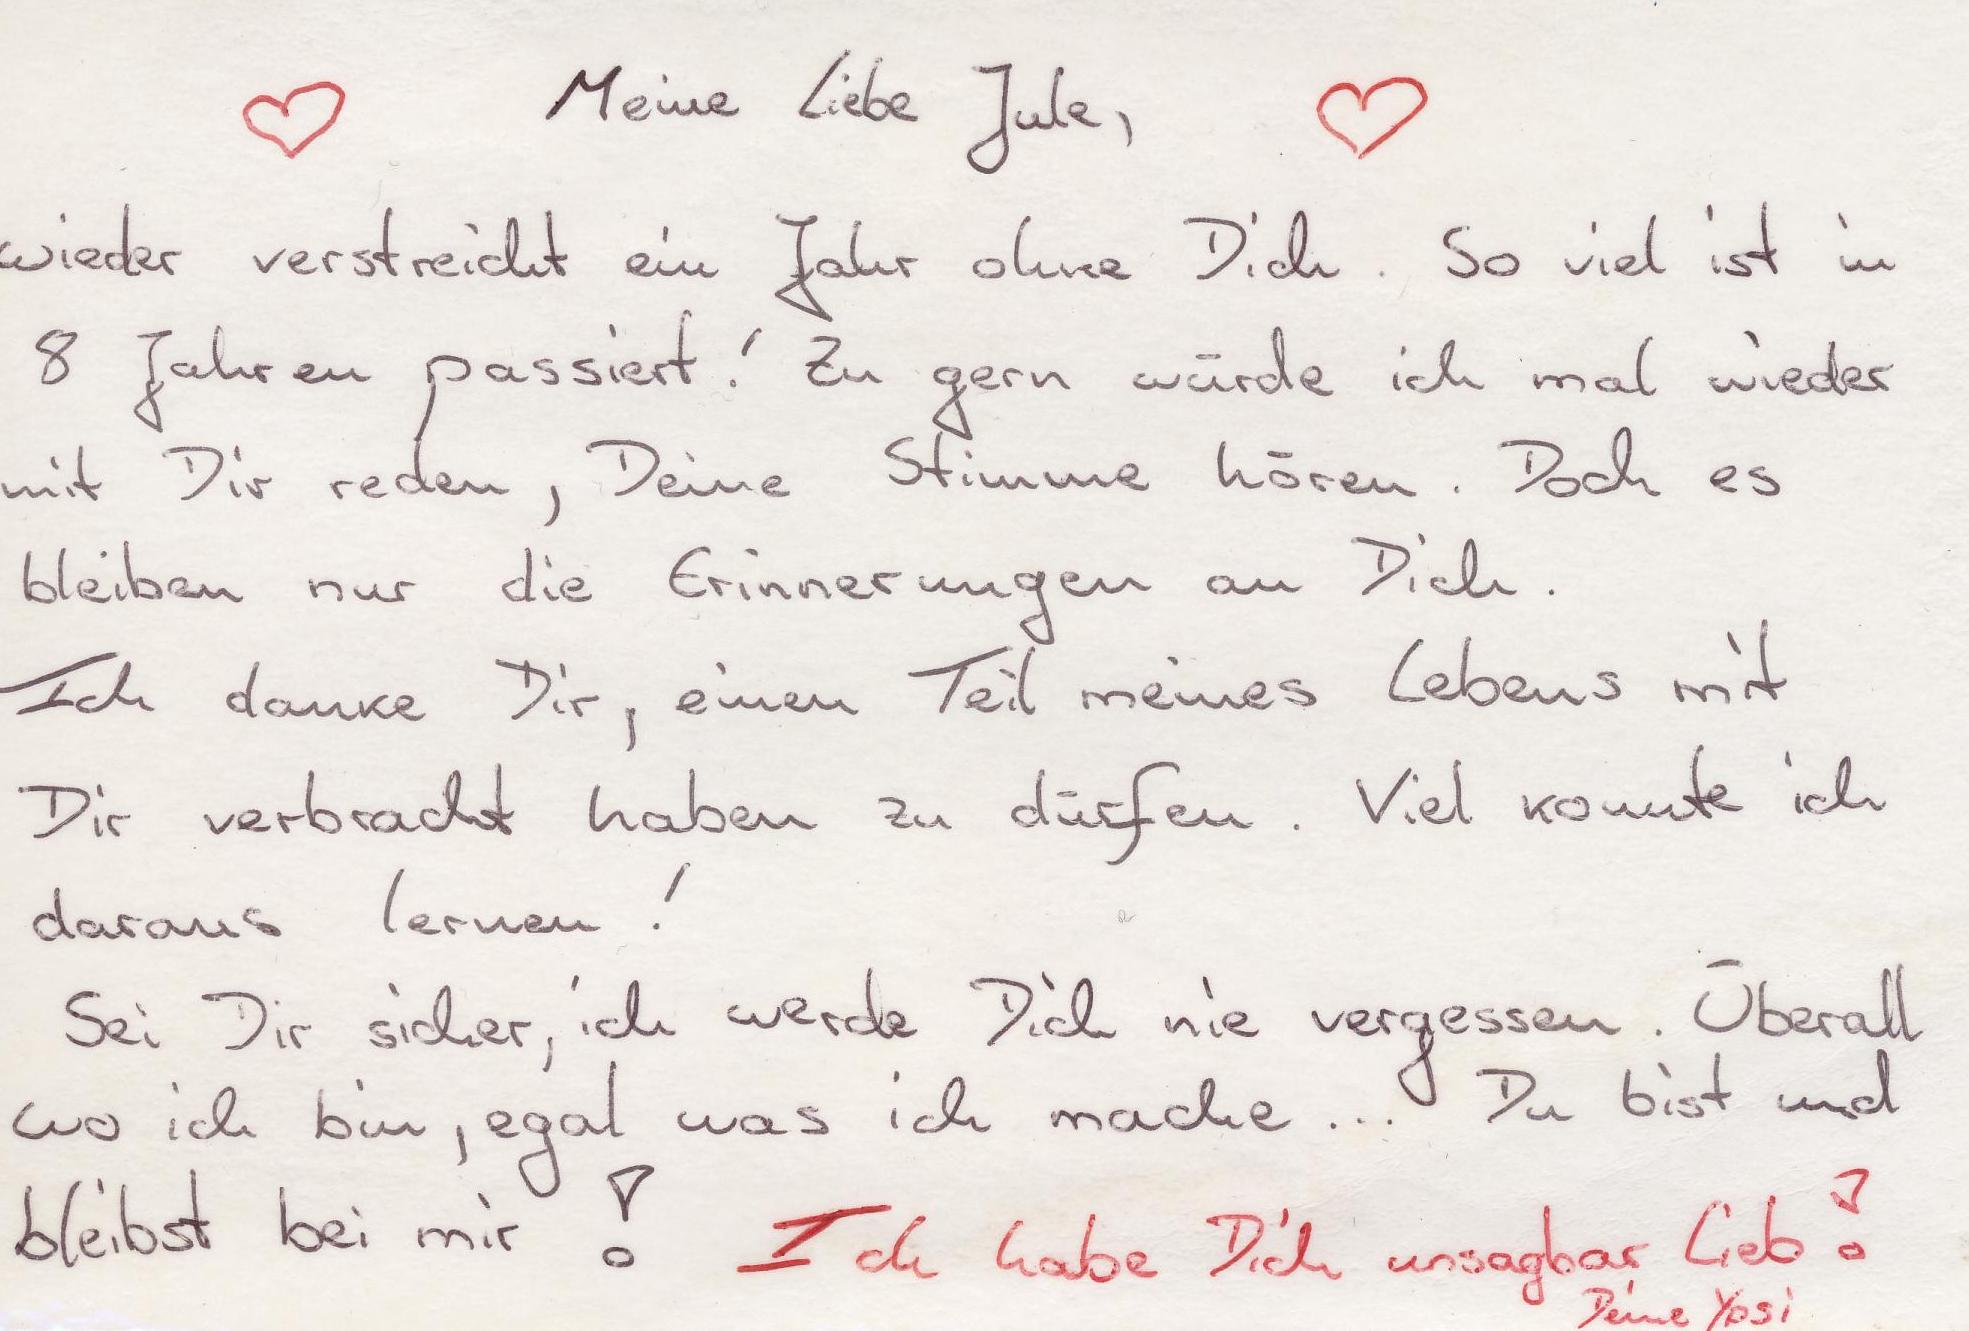 Meine Liebe Jule,
wieder verstreicht ein Jahr ohne Dich. So viel ist in
8 Jahren passiert! Zu gern würde ich mal wieder
mit Dir reden, Deine Stimme hören. Doch es
bleiben nur die Erinnerungen an Dich.
Ich danke Dir, einen Teil meines Lebens mit
Dir verbracht haben zu dürfen. Viel konnte ich
daraus lernen!
Sei Dir sicher, ich werde Dich nie vergessen. Überall
wo ich bin, egal was ich mache... Du bist und
bleibst bei mir! Ich habe Dich unsagbar Lieb!
Deine Yosi